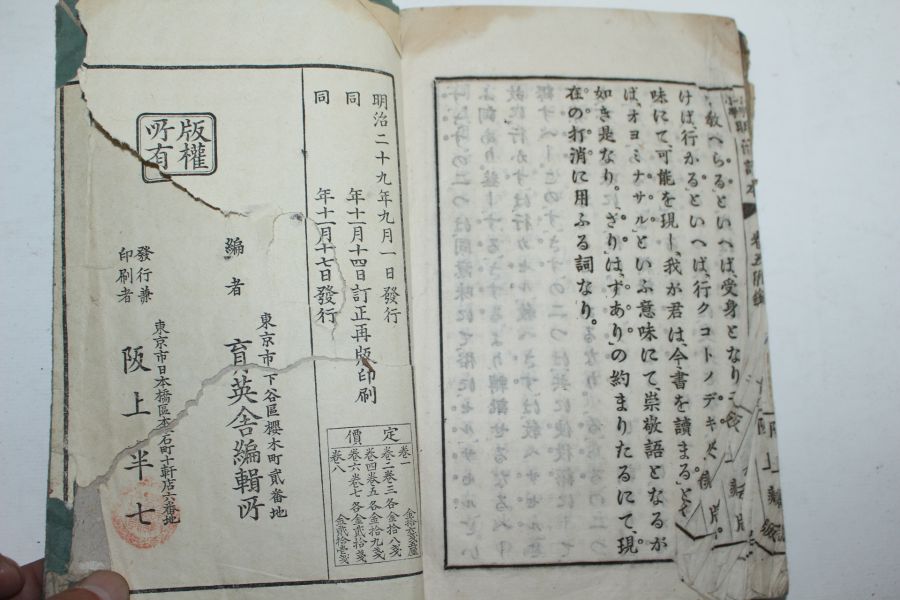 敎へらるといへば、受身となり
けば、行かるといへば、行クコトノデキル
味にて、可能を現し、我が君は、今書を讀まるとせ
ば、オヨミナサルといふ意味にて、崇敬語となるが
如き是なり。ざりは、ずありの約まりたるにて、現
在の打消に用ふる詞なり。
明治二十九年九月一日發行
同 年十一月十四日訂正再版印刷
同 年十一月十七日發行
定價
卷一 金拾六錢五厘
卷二卷三各金拾八錢
卷四卷五各金拾九錢
卷六卷七各金貳拾錢
卷八 金貳拾壱錢
版權所有
編者
東京市下谷區櫻木町貳番地
育英舍編輯所
發行兼印刷者
東京市日本橋區本石町十軒店六番地
阪上半七